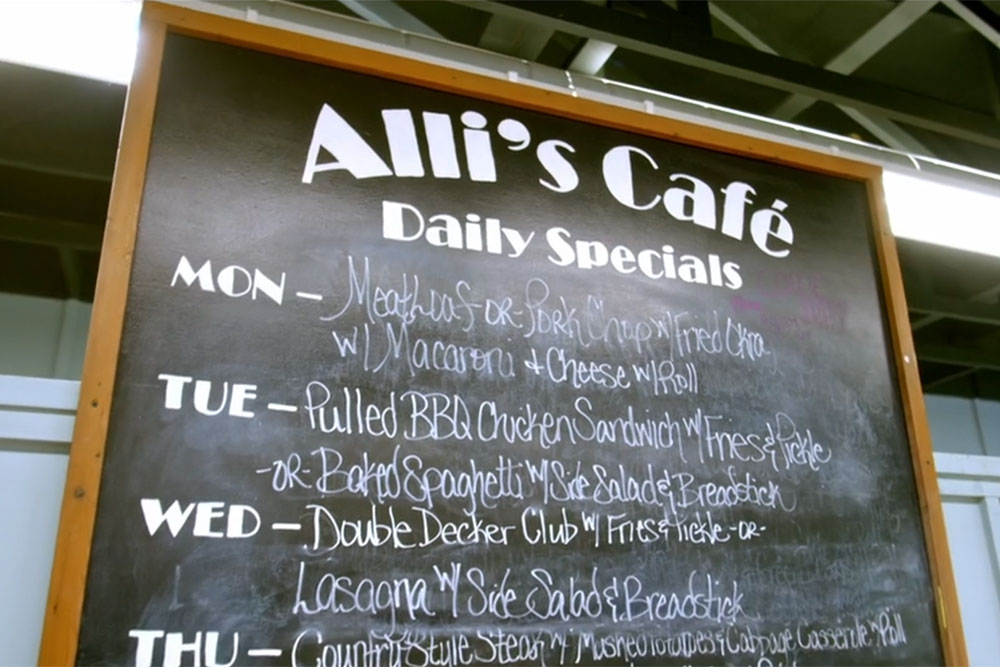 Alli's Café
Daily Specials
MON – Meatloaf -or- Pork Chop w/ Fried Okra
w/ Macaroni & Cheese w/ Roll
TUE – Pulled BBQ Chicken Sandwich w/ Fries & Pickle
-or- Baked Spaghetti w/ Side Salad & Breadstick
WED – Double Decker Club w/ Fries & Pickle -or-
Lasagna w/ Side Salad & Breadstick
THU – Country Style Steak w/ Mashed Potatoes & Cabbage Casserole w/ Roll